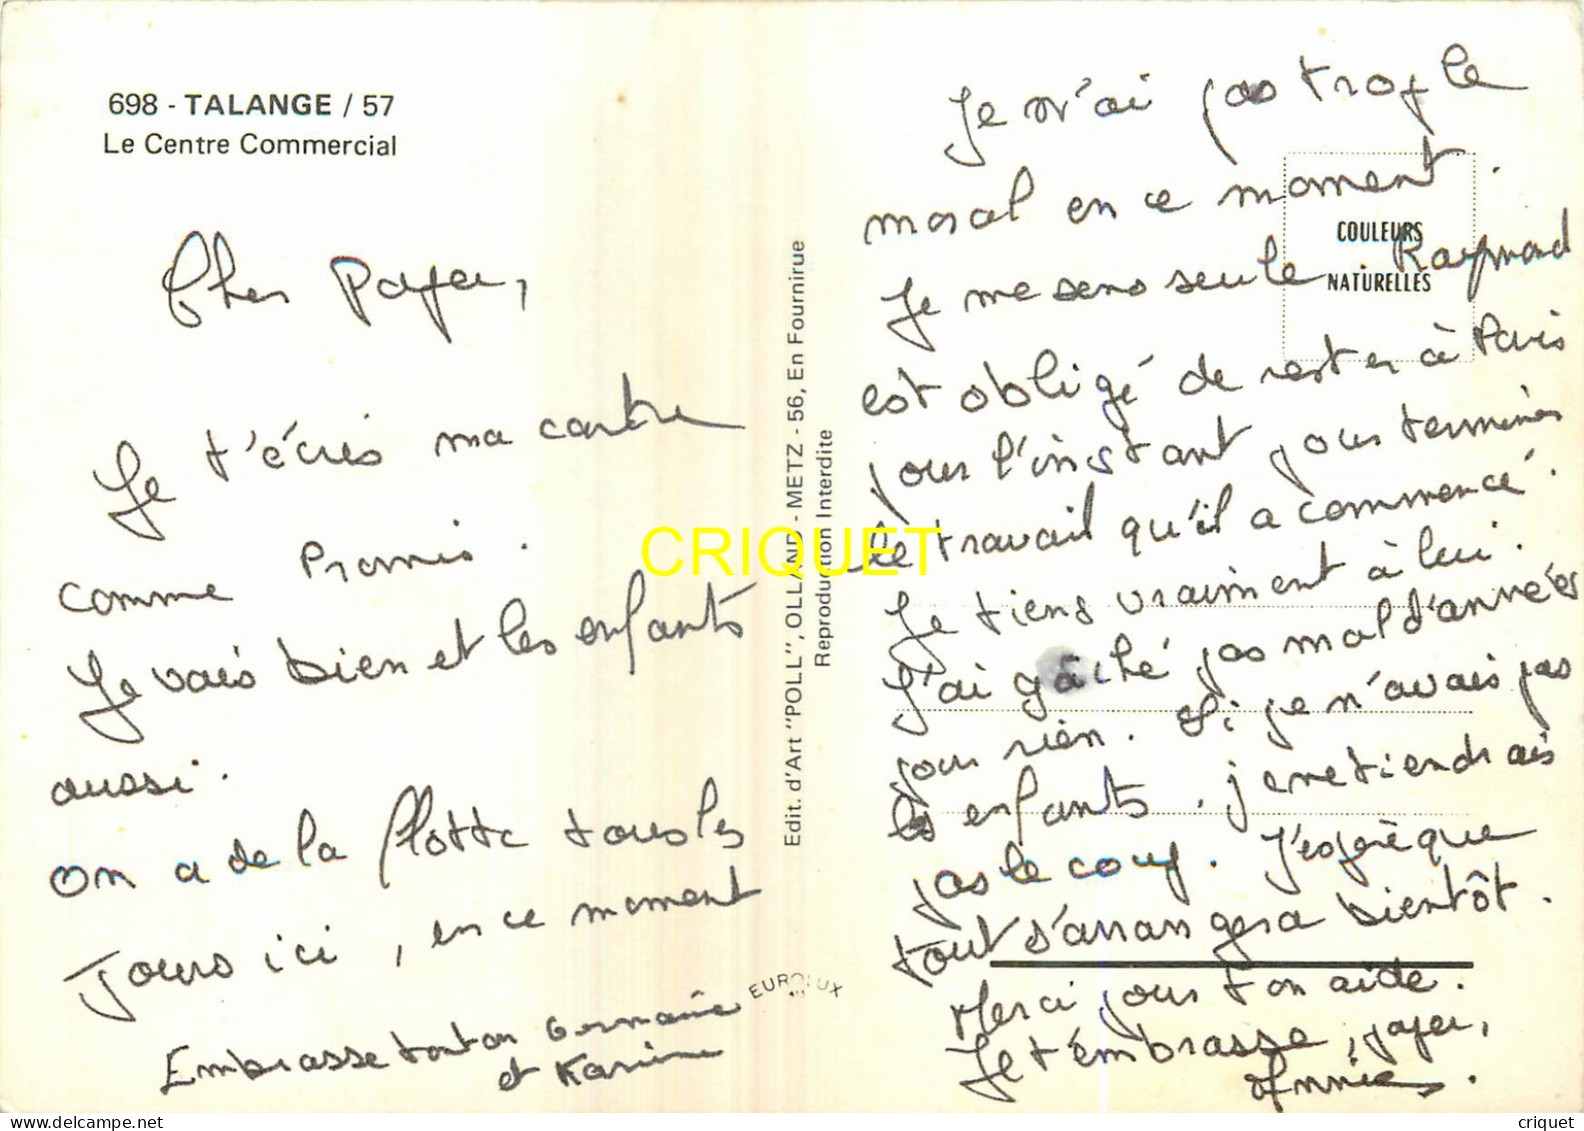 698 - TALANGE / 57
Le Centre Commercial
Cher Papa,
Je t'écris ma carte
comme Promis.
Je vais bien et les enfants
aussi.
On a de la flotte tous les
Jours ici, en ce moment
Embrasse tonton Germaine
et Karine
Edit. d'Art "POLL", OLLAND - METZ - 56, En Fournirue
Reproduction Interdite
EUROLUX
CRIQUET
COULEURS
NATURELLES
Je n'ai pas trop le
moral en ce moment.
Je me sens seule. Raymond
est obligé de rester à Paris
pour l'instant pour terminer
le travail qu'il a commencé.
Je tiens vraiment à lui.
J'ai gâché pas mal d'années
pour rien. Si je n'avais pas
les enfants, je ne tiendrais
pas le coup. J'espère que
tout s'arrangera bientôt.
Merci pour ton aide.
Je t'embrasse, papa,
Annie.
criquet
Delcampe.net